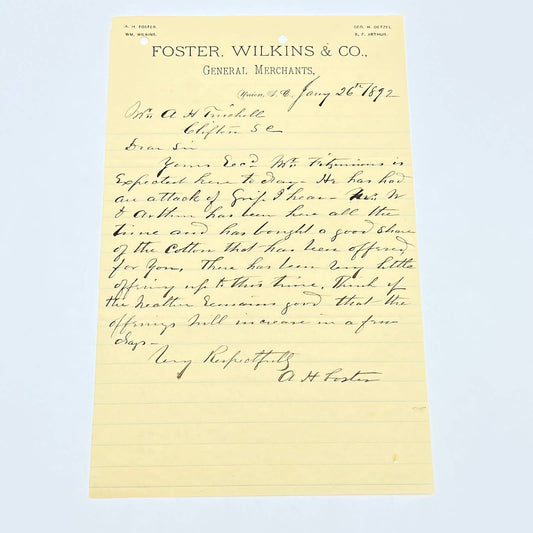 A. H. FOSTER. GEO. H. OETZEL.
WM. WILKINS. B. F. ARTHUR.
FOSTER, WILKINS & CO.,
GENERAL MERCHANTS,
Union, S. C., Jany 26th 1892
Mr A H Twichell
Clifton S C
Dear Sir
Yours Recd. Mr. is
Expected here to day - He has had
an attack of Grip. I hear - W
Arthur has been here all the
time and has bought a good share
of the cotton that has been offered
for You. There has been very little
offering up to this time. Think if
the weather remains good that the
offerings will increase in a few
days -
Very Respectfully
A H Foster